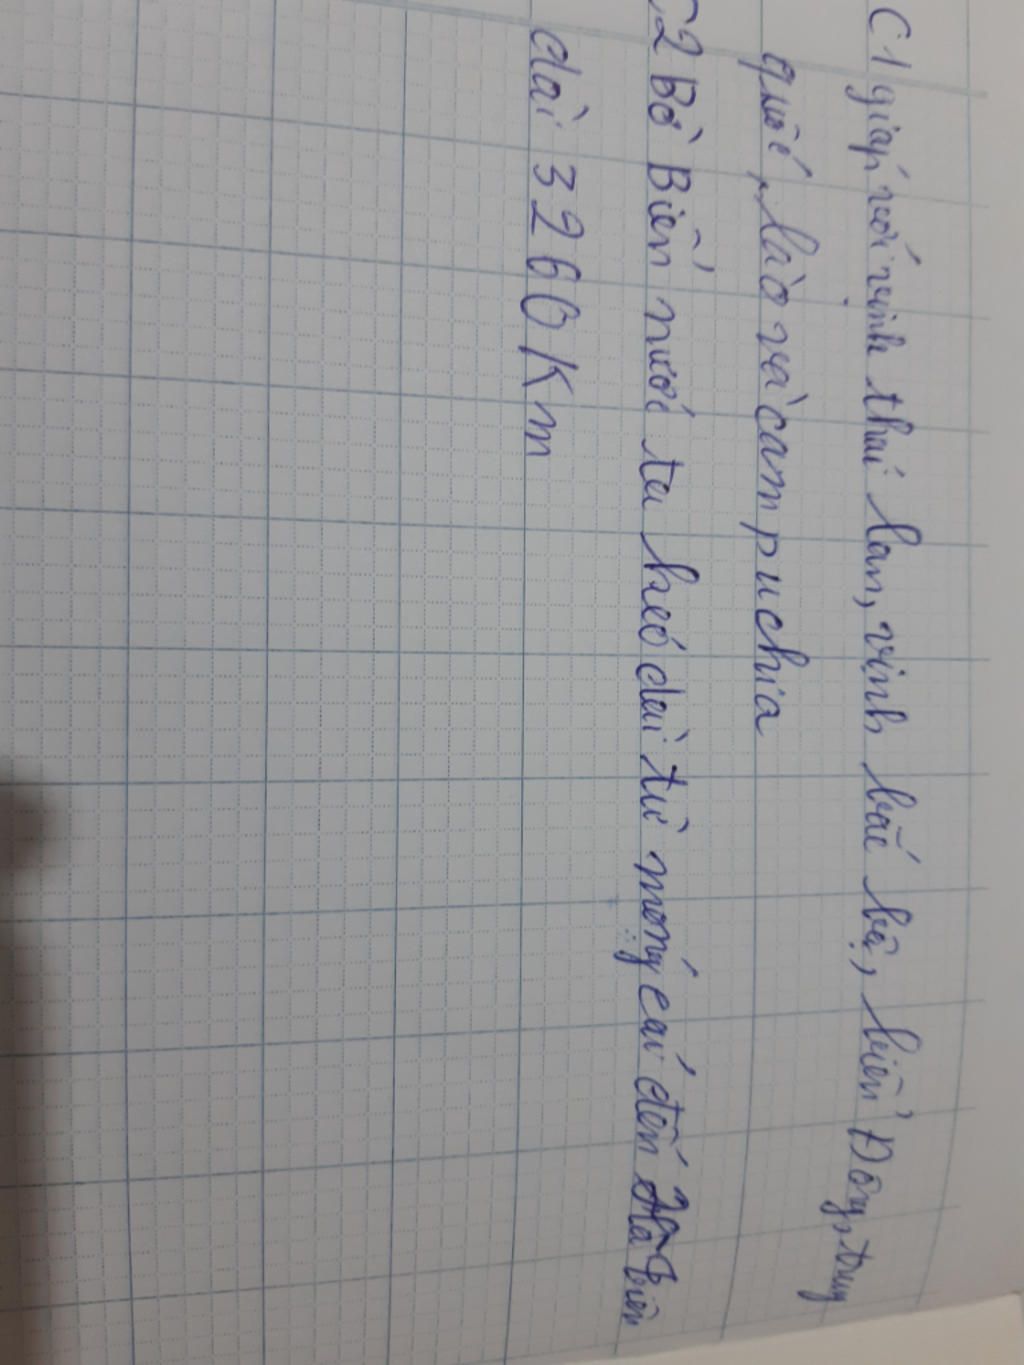 C1 giáp với vịnh thái lan, vịnh bắc bộ, biển Đông, trung
quốc, lào và campuchia
C2 Bờ Biển nước ta kéo dài từ móng cái đến Hà tiên
dài 3260 Km